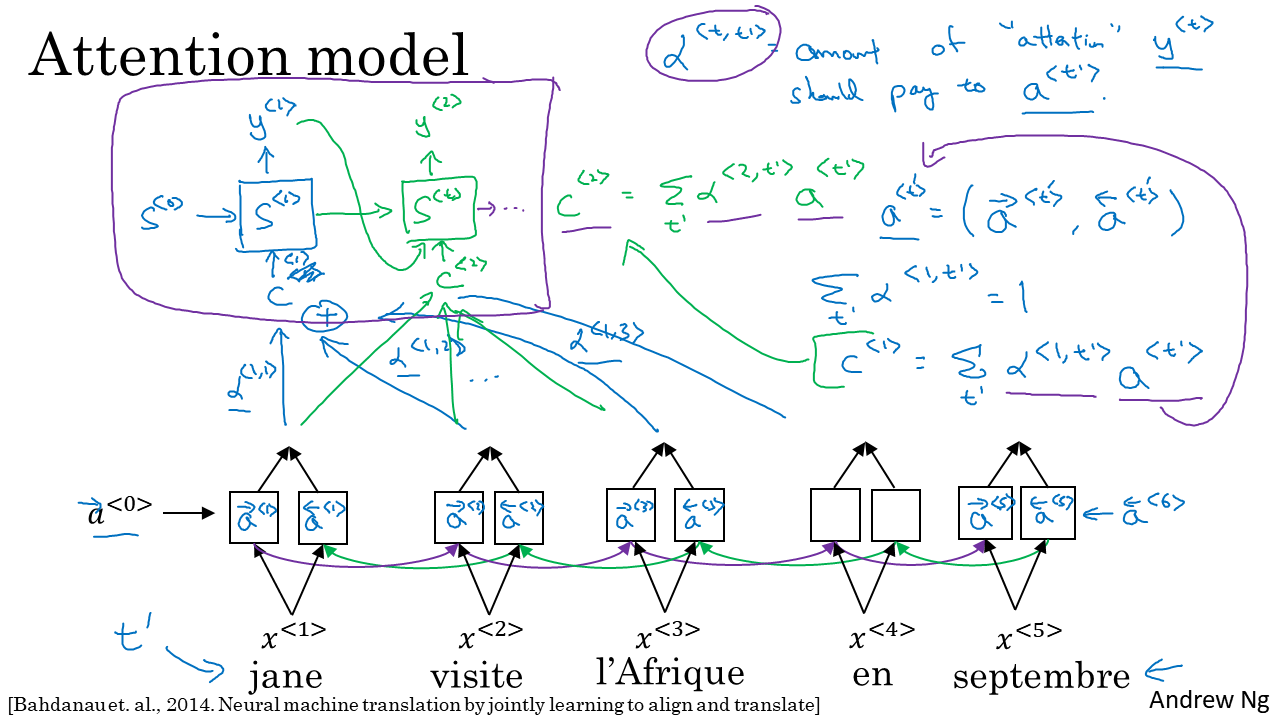 Attention model
α<t,t'> = amount of "attention" y<t>
should pay to a<t'>.
y<1> y<2>
S<0> → S<1> → S<2> → ...
c<1> c<2>
c<2> = Σt' α<2,t'> a<t'>
a<t'> = (→a<t'>, ←a<t'>)
Σt' α<1,t'> = 1
c<1> = Σt' α<1,t'> a<t'>
+
α<1,1> α<1,2> ... α<1,3>
→a<0> →a<1> ←a<1> →a<2> ←a<2> →a<3> ←a<3> →a<5> ←a<5> ← ←a<6>
x<1> x<2> x<3> x<4> x<5>
t' jane visite l'Afrique en septembre
[Bahdanau et. al., 2014. Neural machine translation by jointly learning to align and translate]
Andrew Ng